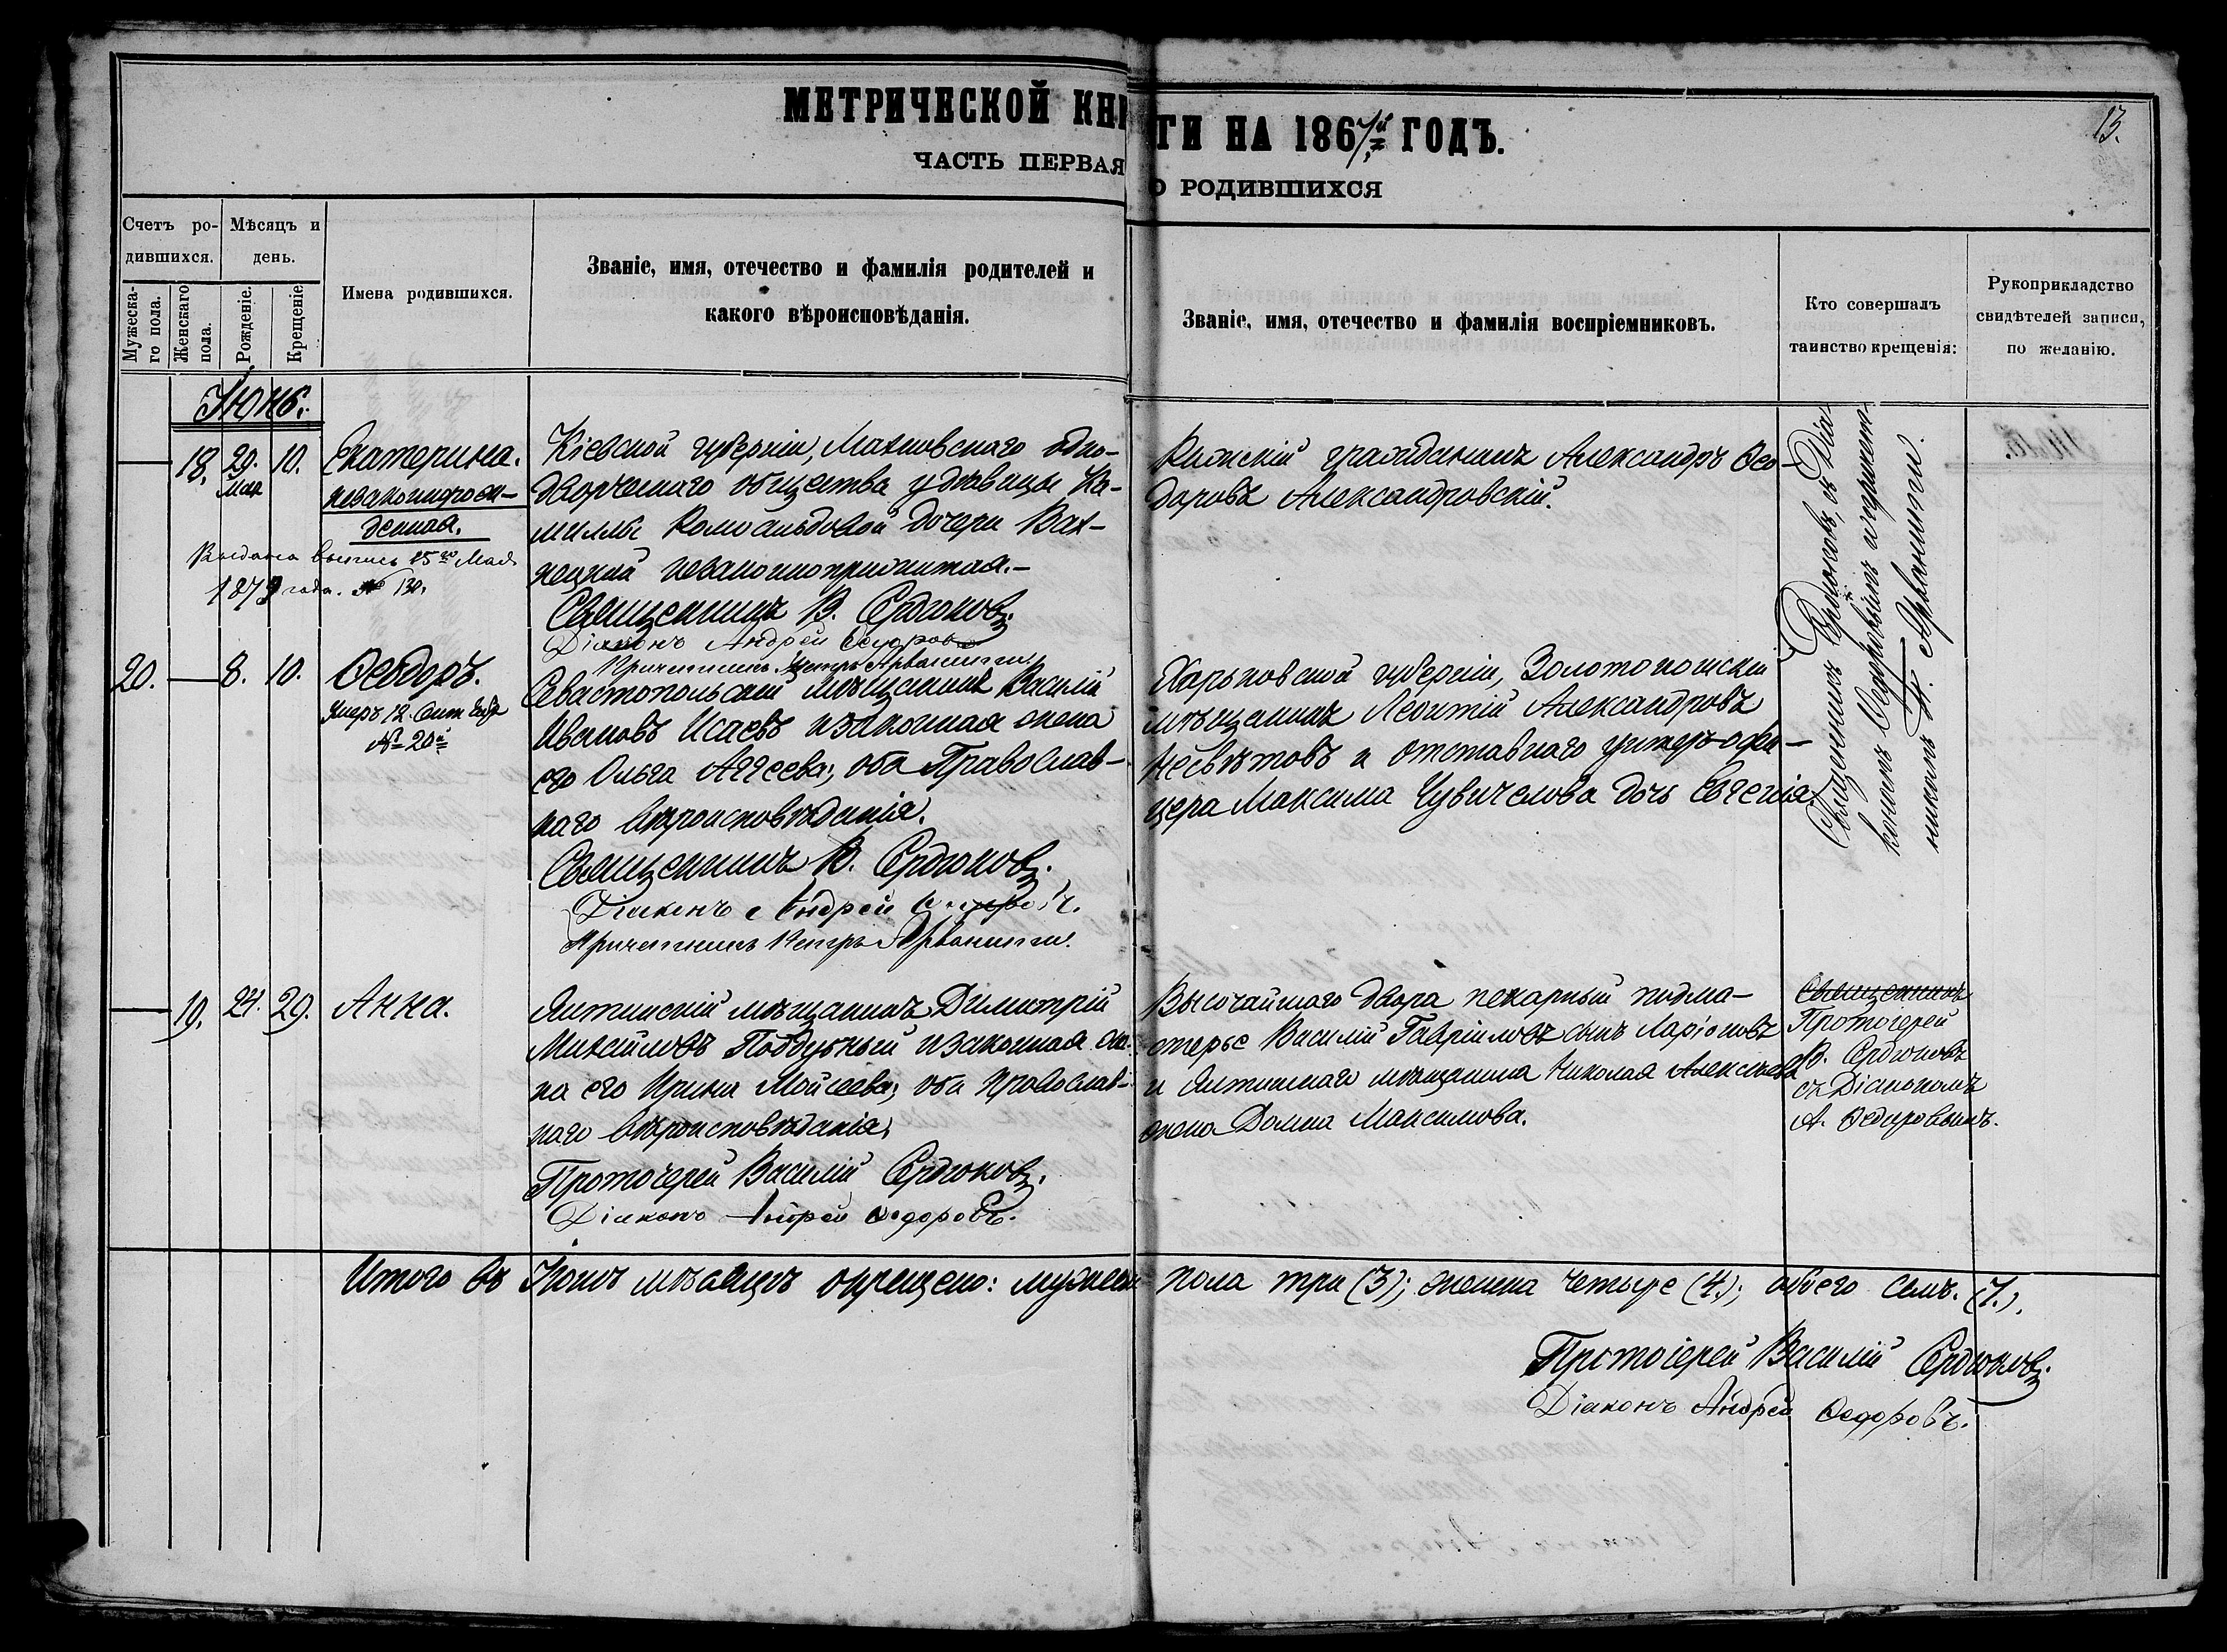 МЕТРИЧЕСКОЙ КНИГИ НА 1867й ГОДЪ.
13.
ЧАСТЬ ПЕРВАЯ О РОДИВШИХСЯ
Счетъ родившихся.
Мужескаго пола.
Женскаго пола.
Мѣсяцъ и день.
Рожденіе.
Крещеніе
Имена родившихся.
Званіе, имя, отечество и фамилія родителей и
какого вѣроисповѣданія.
Званіе, имя, отечество и фамилія воспріемниковъ.
Кто совершалъ
таинство крещенія:
Рукоприкладство
свидѣтелей записи,
по желанію.
Іюнь.
— 18. 29. Мая 10.
Екатерина.
незаконнорож-
денная.
Выдана выпись 25го Мая
1879 года. № 130.
Кіевской губерніи, Махновскаго одно-
дворческаго общества у дѣвицы Ка-
миллы Ромоальдовой дочери Вах-
нецкой незаконноприжитая.—
Священникъ В. Сердюковъ.
Діаконъ Андрей Ѳедоровъ
Причетникъ Петръ Арванитти.
Рижскій гражданинъ Александръ Ѳео-
доровъ Александровскій.
Священникъ Сердюковъ, съ Діа-
кономъ Ѳедоровымъ и причет-
никомъ П. Арванитти.
20. — 8. 10.
Ѳеодоръ.
Умеръ 12. Сент.
№ 20й
Севастопольскій мѣщанинъ Василій
Ивановъ Исаевъ и законная жена
его Ольга Аггеева; оба Православ-
наго вѣроисповѣданія.
Священникъ В. Сердюковъ.
Діаконъ Андрей Ѳедоровъ.
Причетникъ Петръ Арванитти.
Харьковской губерніи, Золотоношскій
мѣщанинъ Леонтій Александровъ
Несвѣтовъ и отставнаго унтеръ-офи-
цера Максима Чувичелова дочь Евгенія.
— 19. 24. 29.
Анна.
Ялтинскій мѣщанинъ Димитрій
Михайловъ Поддубный и законная же-
на его Ирина Мойсеева; оба Православ-
наго вѣроисповѣданія.
Протоіерей Василій Сердюковъ.
Діаконъ Андрей Ѳедоровъ.
Высочайшаго двора пекарный подма-
стерье Василій Гавріиловъ сынъ Ларіоновъ
и Ялтинскаго мѣщанина Николая Алексѣева
жена Домна Максимова.
Священникъ
Протоіерей
В. Сердюковъ
съ Діакономъ
А. Ѳедоровымъ.
Итого въ Іюнѣ мѣсяцѣ окрещено: мужеска пола три (3); женска четыре (4.); обоего семь. (7.).
Протоіерей Василій Сердюковъ.
Діаконъ Андрей Ѳедоровъ.